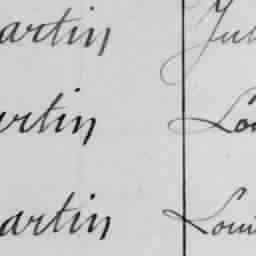 artin Jul
rtin Lou
artin Loui